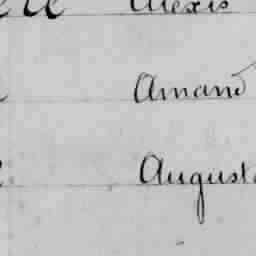 Alexis
Amand
August